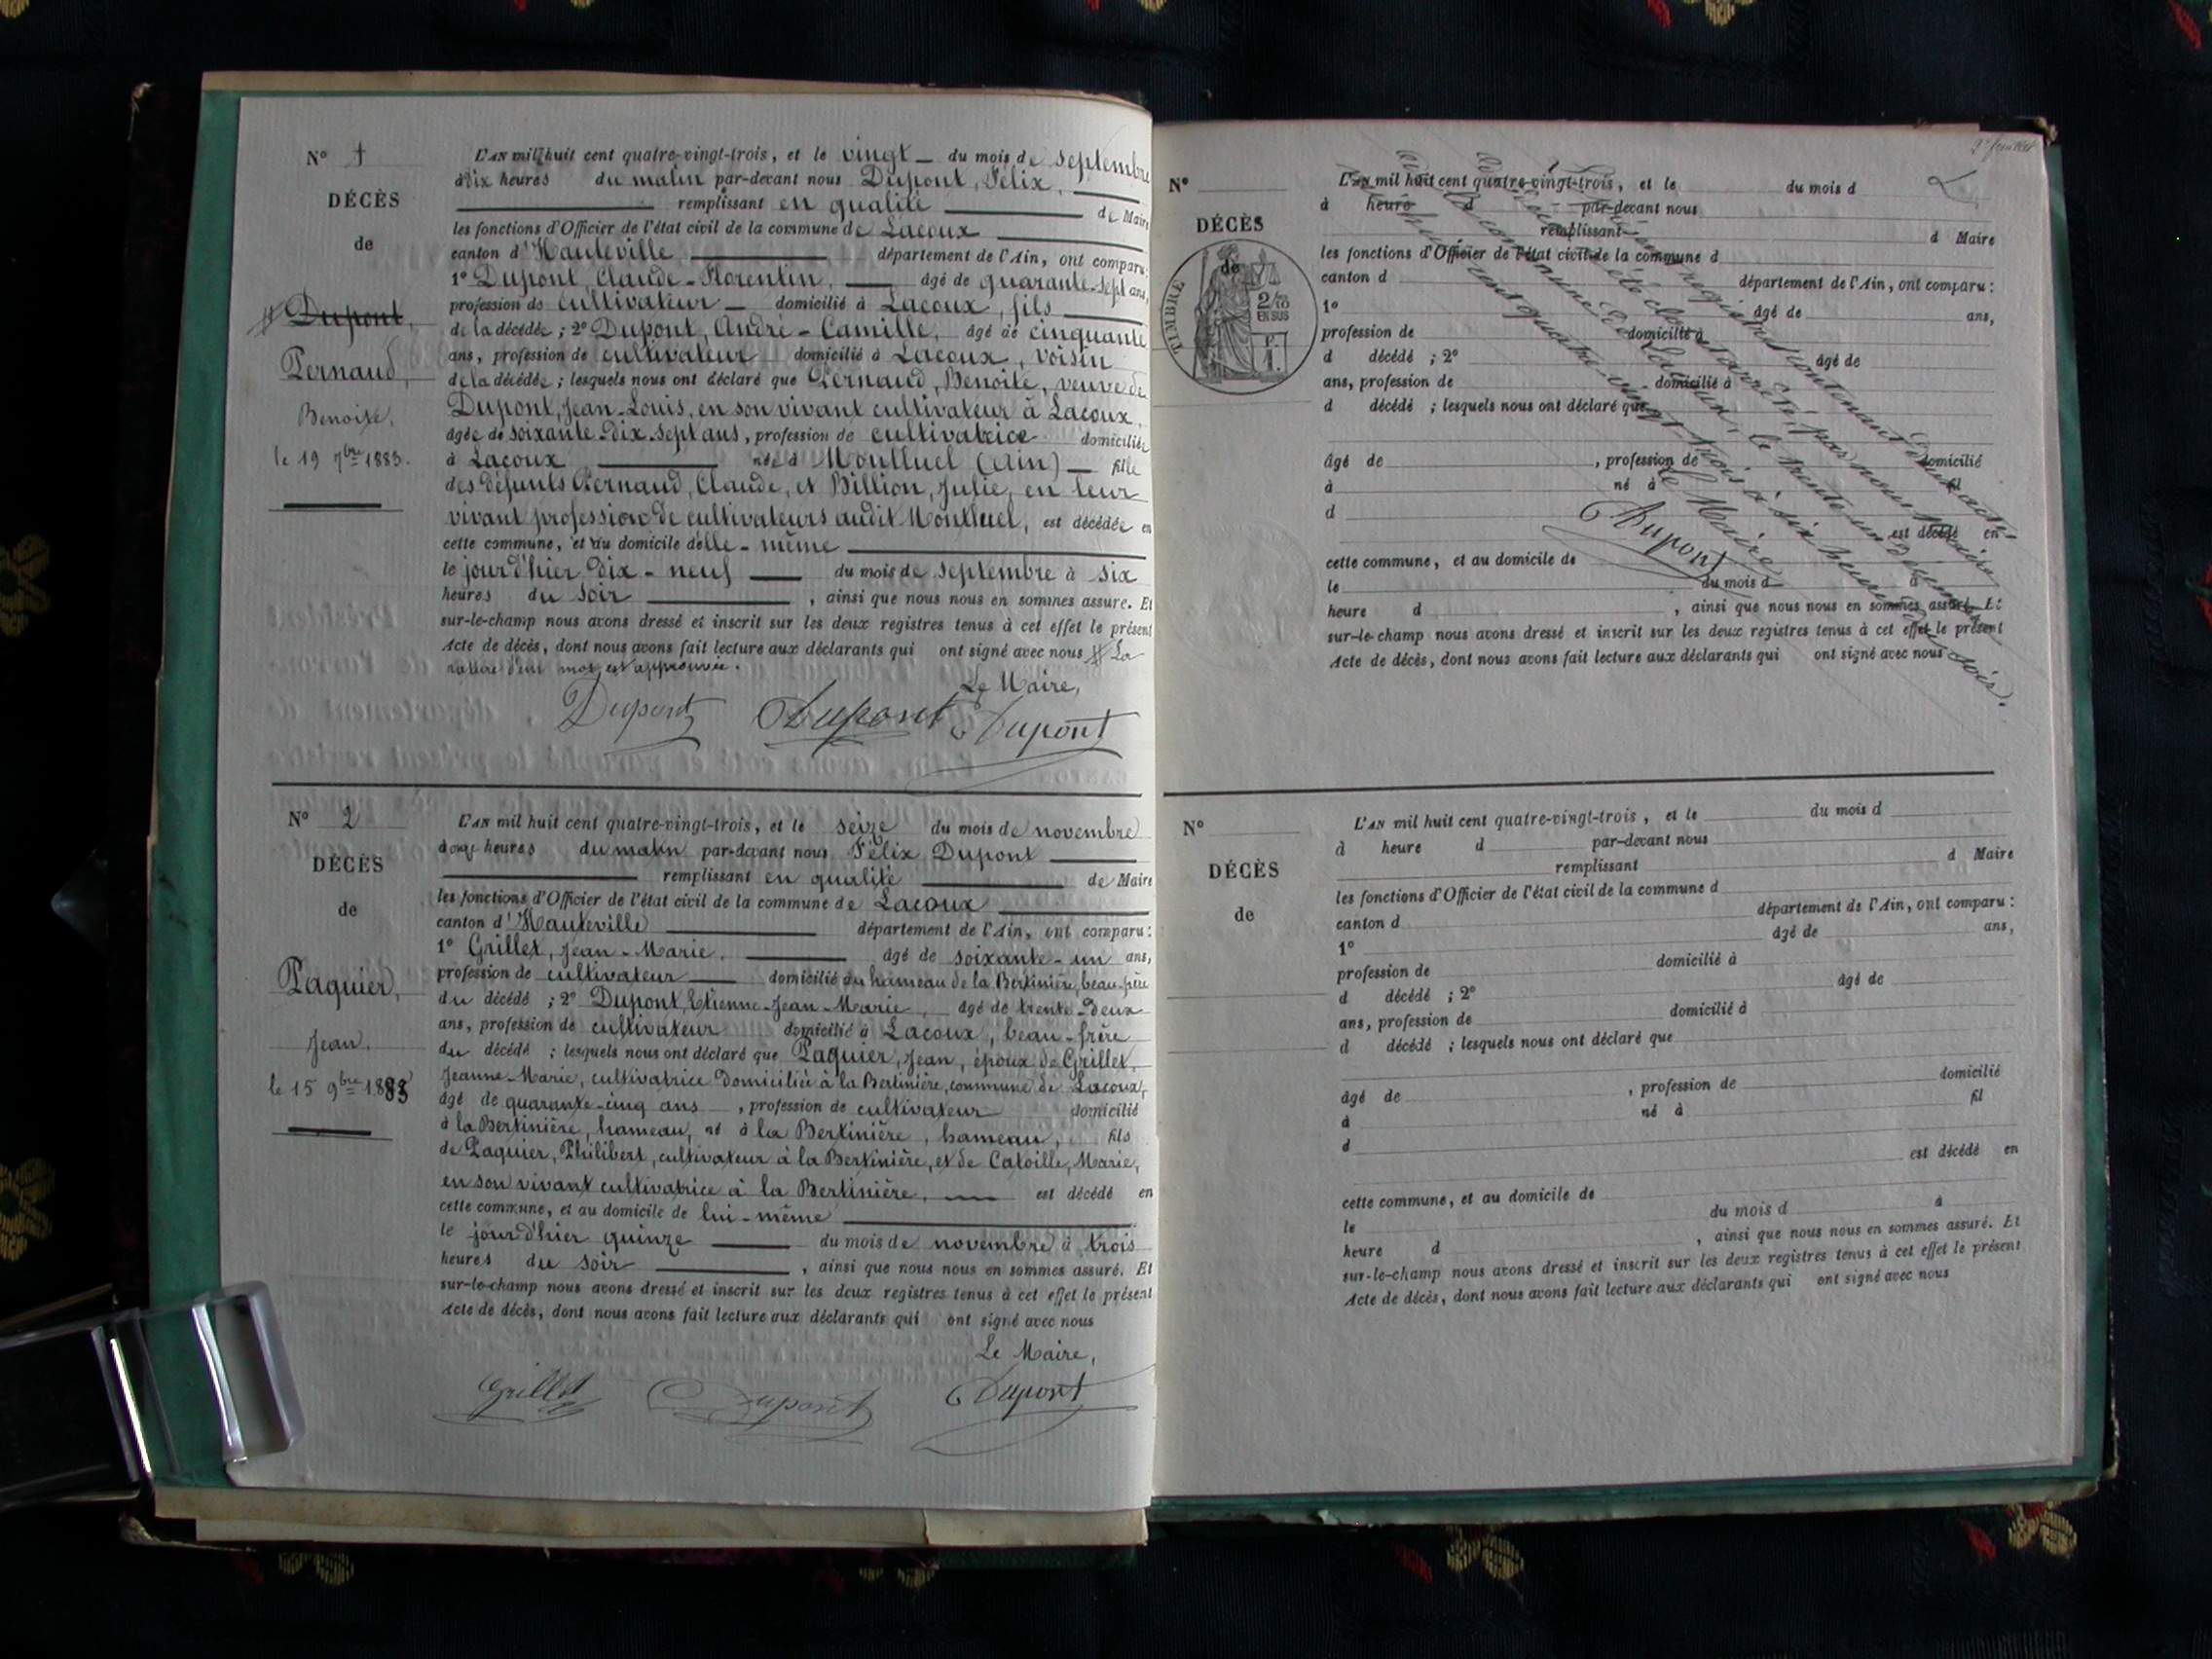 N° 1
DÉCÈS
de
Dupont,
Pernaud,
Benoite,
le 19 7bre 1883.
L'AN mil huit cent quatre-vingt-trois, et le vingt du mois de septembre
à dix heures du matin par-devant nous Dupont, Félix,
remplissant en qualité de Maire
les fonctions d'Officier de l'état civil de la commune de Lacoux
canton d'Hauteville département de l'Ain, ont comparu:
1° Dupont, Claude-Florentin, âgé de quarante-sept ans,
profession de cultivateur domicilié à Lacoux, fils
de la décédée ; 2° Dupont, André-Camille, âgé de cinquante
ans, profession de cultivateur domicilié à Lacoux, voisin
de la décédée ; lesquels nous ont déclaré que Pernaud, Benoite, veuve de
Dupont, Jean-Louis, en son vivant cultivateur à Lacoux,
âgée de soixante-dix-sept ans, profession de cultivatrice domiciliée
à Lacoux née à Montluel (Ain) fille
des défunts Pernaud, Claude, et Billion, Julie, en leur
vivant profession de cultivateurs audit Montluel, est décédée en
cette commune, et au domicile d'elle-même
le jour d'hier dix-neuf du mois de septembre à six
heures du soir , ainsi que nous nous en sommes assuré. Et
sur-le-champ nous avons dressé et inscrit sur les deux registres tenus à cet effet le présent
Acte de décès, dont nous avons fait lecture aux déclarants qui ont signé avec nous # La
rature d'un mot est approuvée.
Le Maire,
Dupont Dupont Dupont
N° 2
DÉCÈS
de
Paquier,
Jean,
le 15 9bre 1883
L'AN mil huit cent quatre-vingt-trois, et le seize du mois de novembre
à onze heures du matin par-devant nous Félix Dupont
remplissant en qualité de Maire
les fonctions d'Officier de l'état civil de la commune de Lacoux
canton d'Hauteville département de l'Ain, ont comparu:
1° Grillet, Jean-Marie, âgé de soixante-un ans,
profession de cultivateur domicilié au hameau de la Bertinière, beau-frère
du décédé ; 2° Dupont, Etienne-Jean-Marie, âgé de trente-deux
ans, profession de cultivateur domicilié à Lacoux, beau-frère
du décédé ; lesquels nous ont déclaré que Paquier, Jean, époux de Grillet,
Jeanne-Marie, cultivatrice domiciliée à la Bertinière, commune de Lacoux,
âgé de quarante-cinq ans , profession de cultivateur domicilié
à la Bertinière, hameau, né à la Bertinière, hameau, fils
de Paquier, Philibert, cultivateur à la Bertinière, et de Catoille, Marie,
en son vivant cultivatrice à la Bertinière, est décédé en
cette commune, et au domicile de lui-même
le jour d'hier quinze du mois de novembre à trois
heures du soir , ainsi que nous nous en sommes assuré. Et
sur-le-champ nous avons dressé et inscrit sur les deux registres tenus à cet effet le présent
Acte de décès, dont nous avons fait lecture aux déclarants qui ont signé avec nous
Le Maire,
Grillet Dupont Dupont
N°
DÉCÈS
de
TIMBRE
2/10
EN SUS
L'AN mil huit cent quatre-vingt-trois, et le du mois d
à heure d par-devant nous
remplissant d Maire
les fonctions d'Officier de l'état civil de la commune d
canton d département de l'Ain, ont comparu:
1° âgé de ans,
profession de domicilié à
d décédé ; 2° âgé de
ans, profession de domicilié à
d décédé ; lesquels nous ont déclaré que
âgé de , profession de domicilié
à né à fil
d est décédé en
cette commune, et au domicile de
le du mois d à
heure d , ainsi que nous nous en sommes assuré. Et
sur-le-champ nous avons dressé et inscrit sur les deux registres tenus à cet effet le présent
Acte de décès, dont nous avons fait lecture aux déclarants qui ont signé avec nous
registre contenant deux actes
été clos et arrêté par nous Maire
de la commune de Lacoux, le trente un décembre
cent quatre-vingt-trois à six heures du soir.
Le Maire
Dupont
N°
DÉCÈS
de
L'AN mil huit cent quatre-vingt-trois, et le du mois d
à heure d par-devant nous
remplissant d Maire
les fonctions d'Officier de l'état civil de la commune d
canton d département de l'Ain, ont comparu:
1° âgé de ans,
profession de domicilié à
d décédé ; 2° âgé de
ans, profession de domicilié à
d décédé ; lesquels nous ont déclaré que
âgé de , profession de domicilié
à né à fil
d est décédé en
cette commune, et au domicile de
le du mois d à
heure d , ainsi que nous nous en sommes assuré. Et
sur-le-champ nous avons dressé et inscrit sur les deux registres tenus à cet effet le présent
Acte de décès, dont nous avons fait lecture aux déclarants qui ont signé avec nous